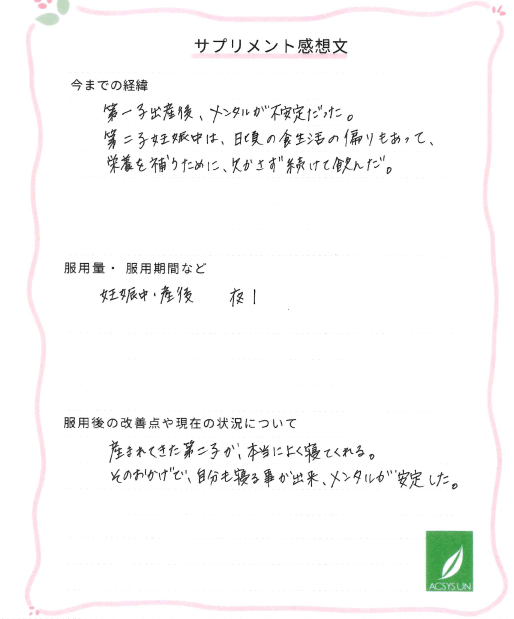 サプリメント感想文
今までの経緯
第一子出産後、メンタルが不安定だった。
第二子妊娠中は、日頃の食生活の偏りもあって、
栄養を補うために、欠かさず続けて飲んだ。
服用量・ 服用期間など
妊娠中・産後 夜1
服用後の改善点や現在の状況について
産まれてきた第二子が、本当によく寝てくれる。
そのおかげで、自分も寝る事が出来、メンタルが安定した。
ACSYSUN